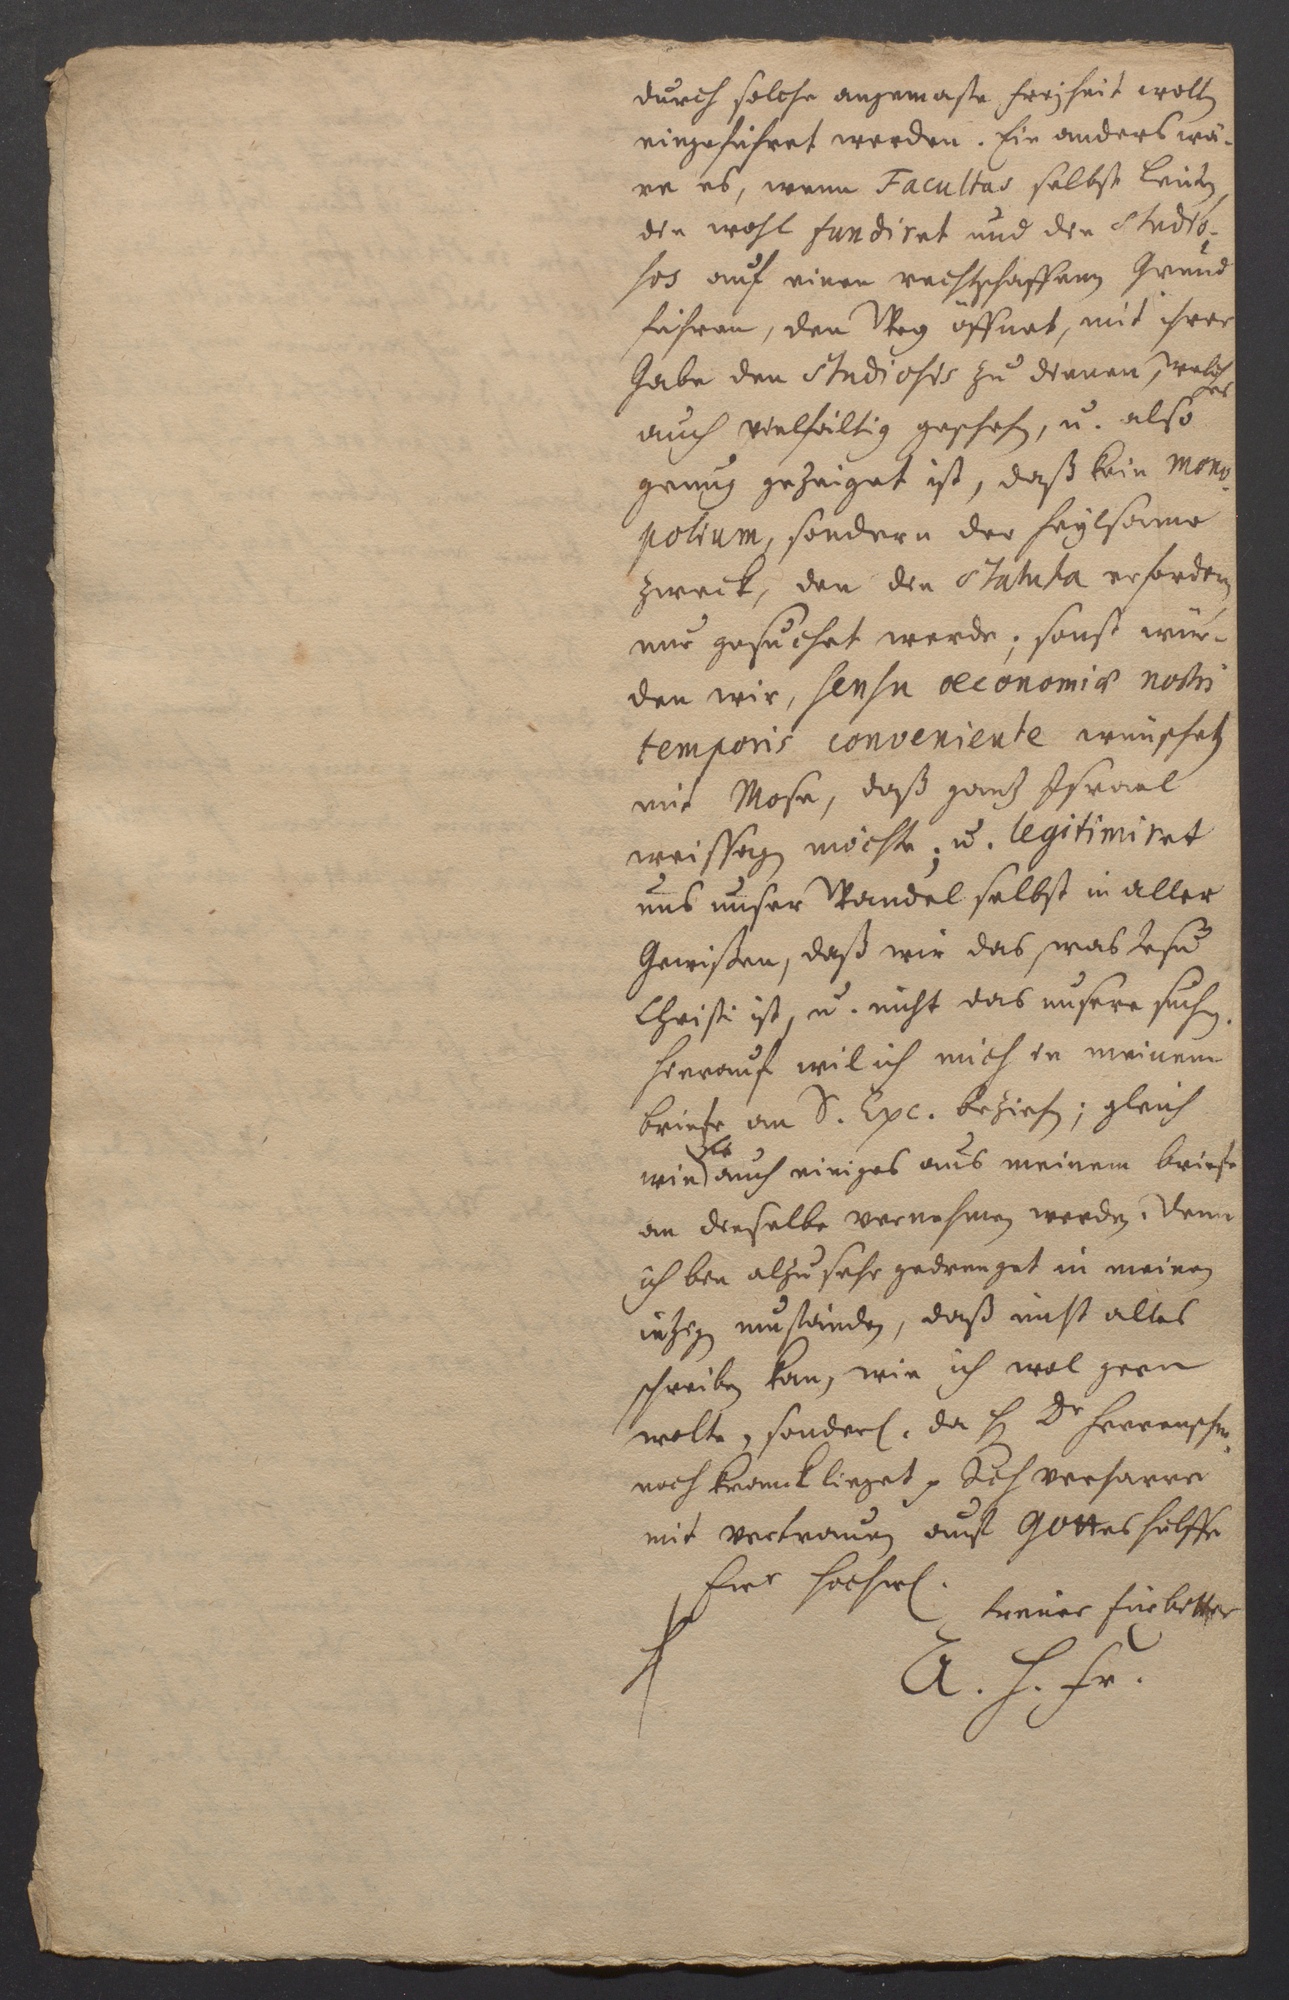 durch solche angemaste Freyheit wolte
eingeführet werden. Ein anders wä-
re es, wenn Facultas selbst Leuten,
die wohl fundiret und die Studio-
sos auf einen rechtschaffenen Grund
führen, den Weg öffnet, mit ihrer
Gabe den Studiosis zu dienen, welches
auch vielfältig geschehen, u. also
genug gezeiget ist, daß kein Mono-
polium, sondern der heylsame
Zweck, den die Statuta erfordern
nur gesuchet werde; sonst wür-
den wir, sensu oeconomiae nostri
temporis conveniente wünschen
mit Mose, daß gantz Israel
weissagen möchte; u. legitimiret
uns unser Wandel selbst in aller
Gewißen, daß wir das, was Jesu
Christi ist, u. nicht das unsere suchen.
Hierauf wil ich mich in meinem
briefe an S. Exc. beziehen; gleich
wie Sie auch einiges aus meinem briefe
an dieselbe vernehmen werden. Denn
ich bin alzu sehr gedrenget in meinen
ietzigen umständen, daß nicht alles
schreiben kan, wie ich wol gern
wolte, sonderl. da H. Dr Herrnschm.
noch kranck lieget p Ich verharre
mit vertrauen auf Gottes hülffe
Ewr Hochw.
treuer fürbitter
A. H. Fr.